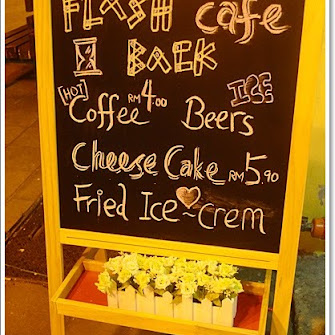 FLASH cafe
BACK
[HOT] ICE
Coffee RM 4.00 Beers
Cheese Cake RM 5.90
Fried Ice-crem